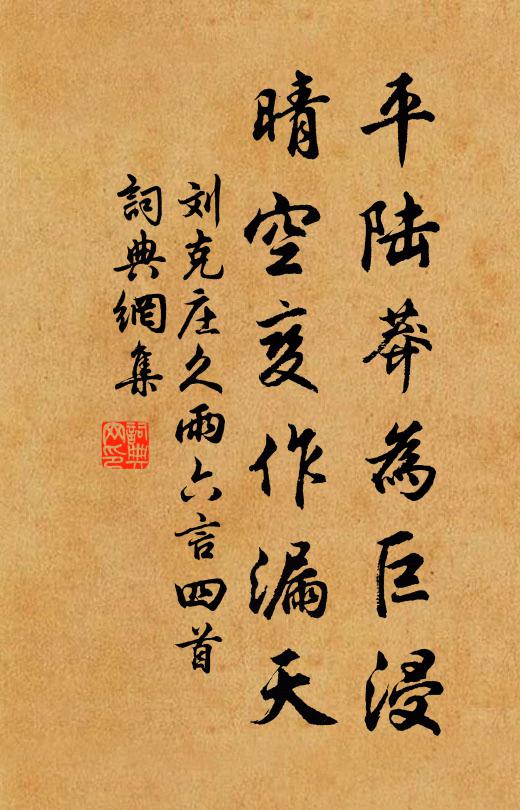 平陆莽為巨浸
晴空变作漏天
刘克庄久雨六言四首
詞典網集
詞典
网印